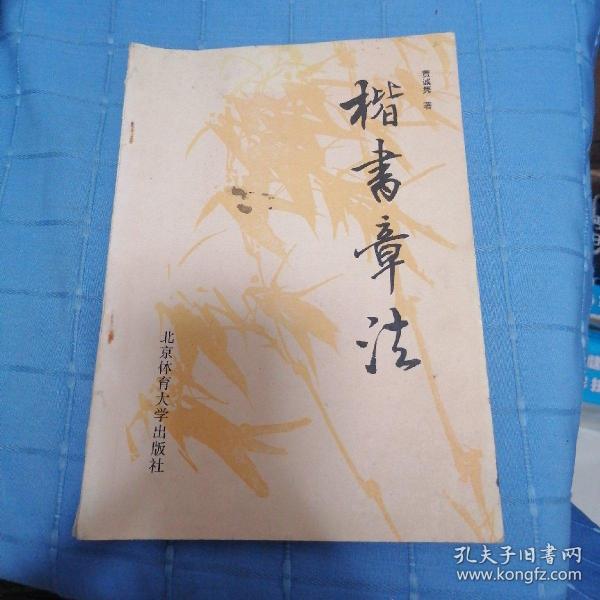 楷书章法
著
北京体育大学出版社
孔夫子旧书网
www.kongfz.com